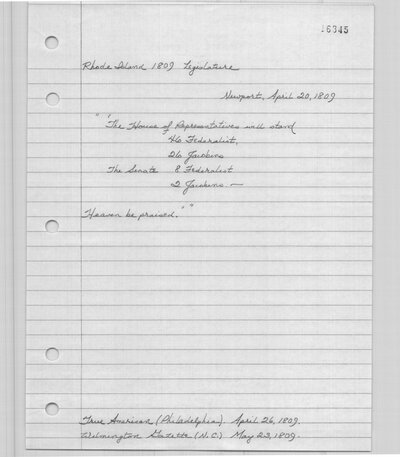 16345
Rhode Island 1809 Legislature
Newport, April 20, 1809
" 'The House of Representatives will stand
46 Federalist,
26 Jacobins
The Senate 8 Federalist
2 Jacobins —
Heaven be praised.' "
True American (Philadelphia). April 26, 1809.
Wilmington Gazette (N.C.) May 23, 1809.